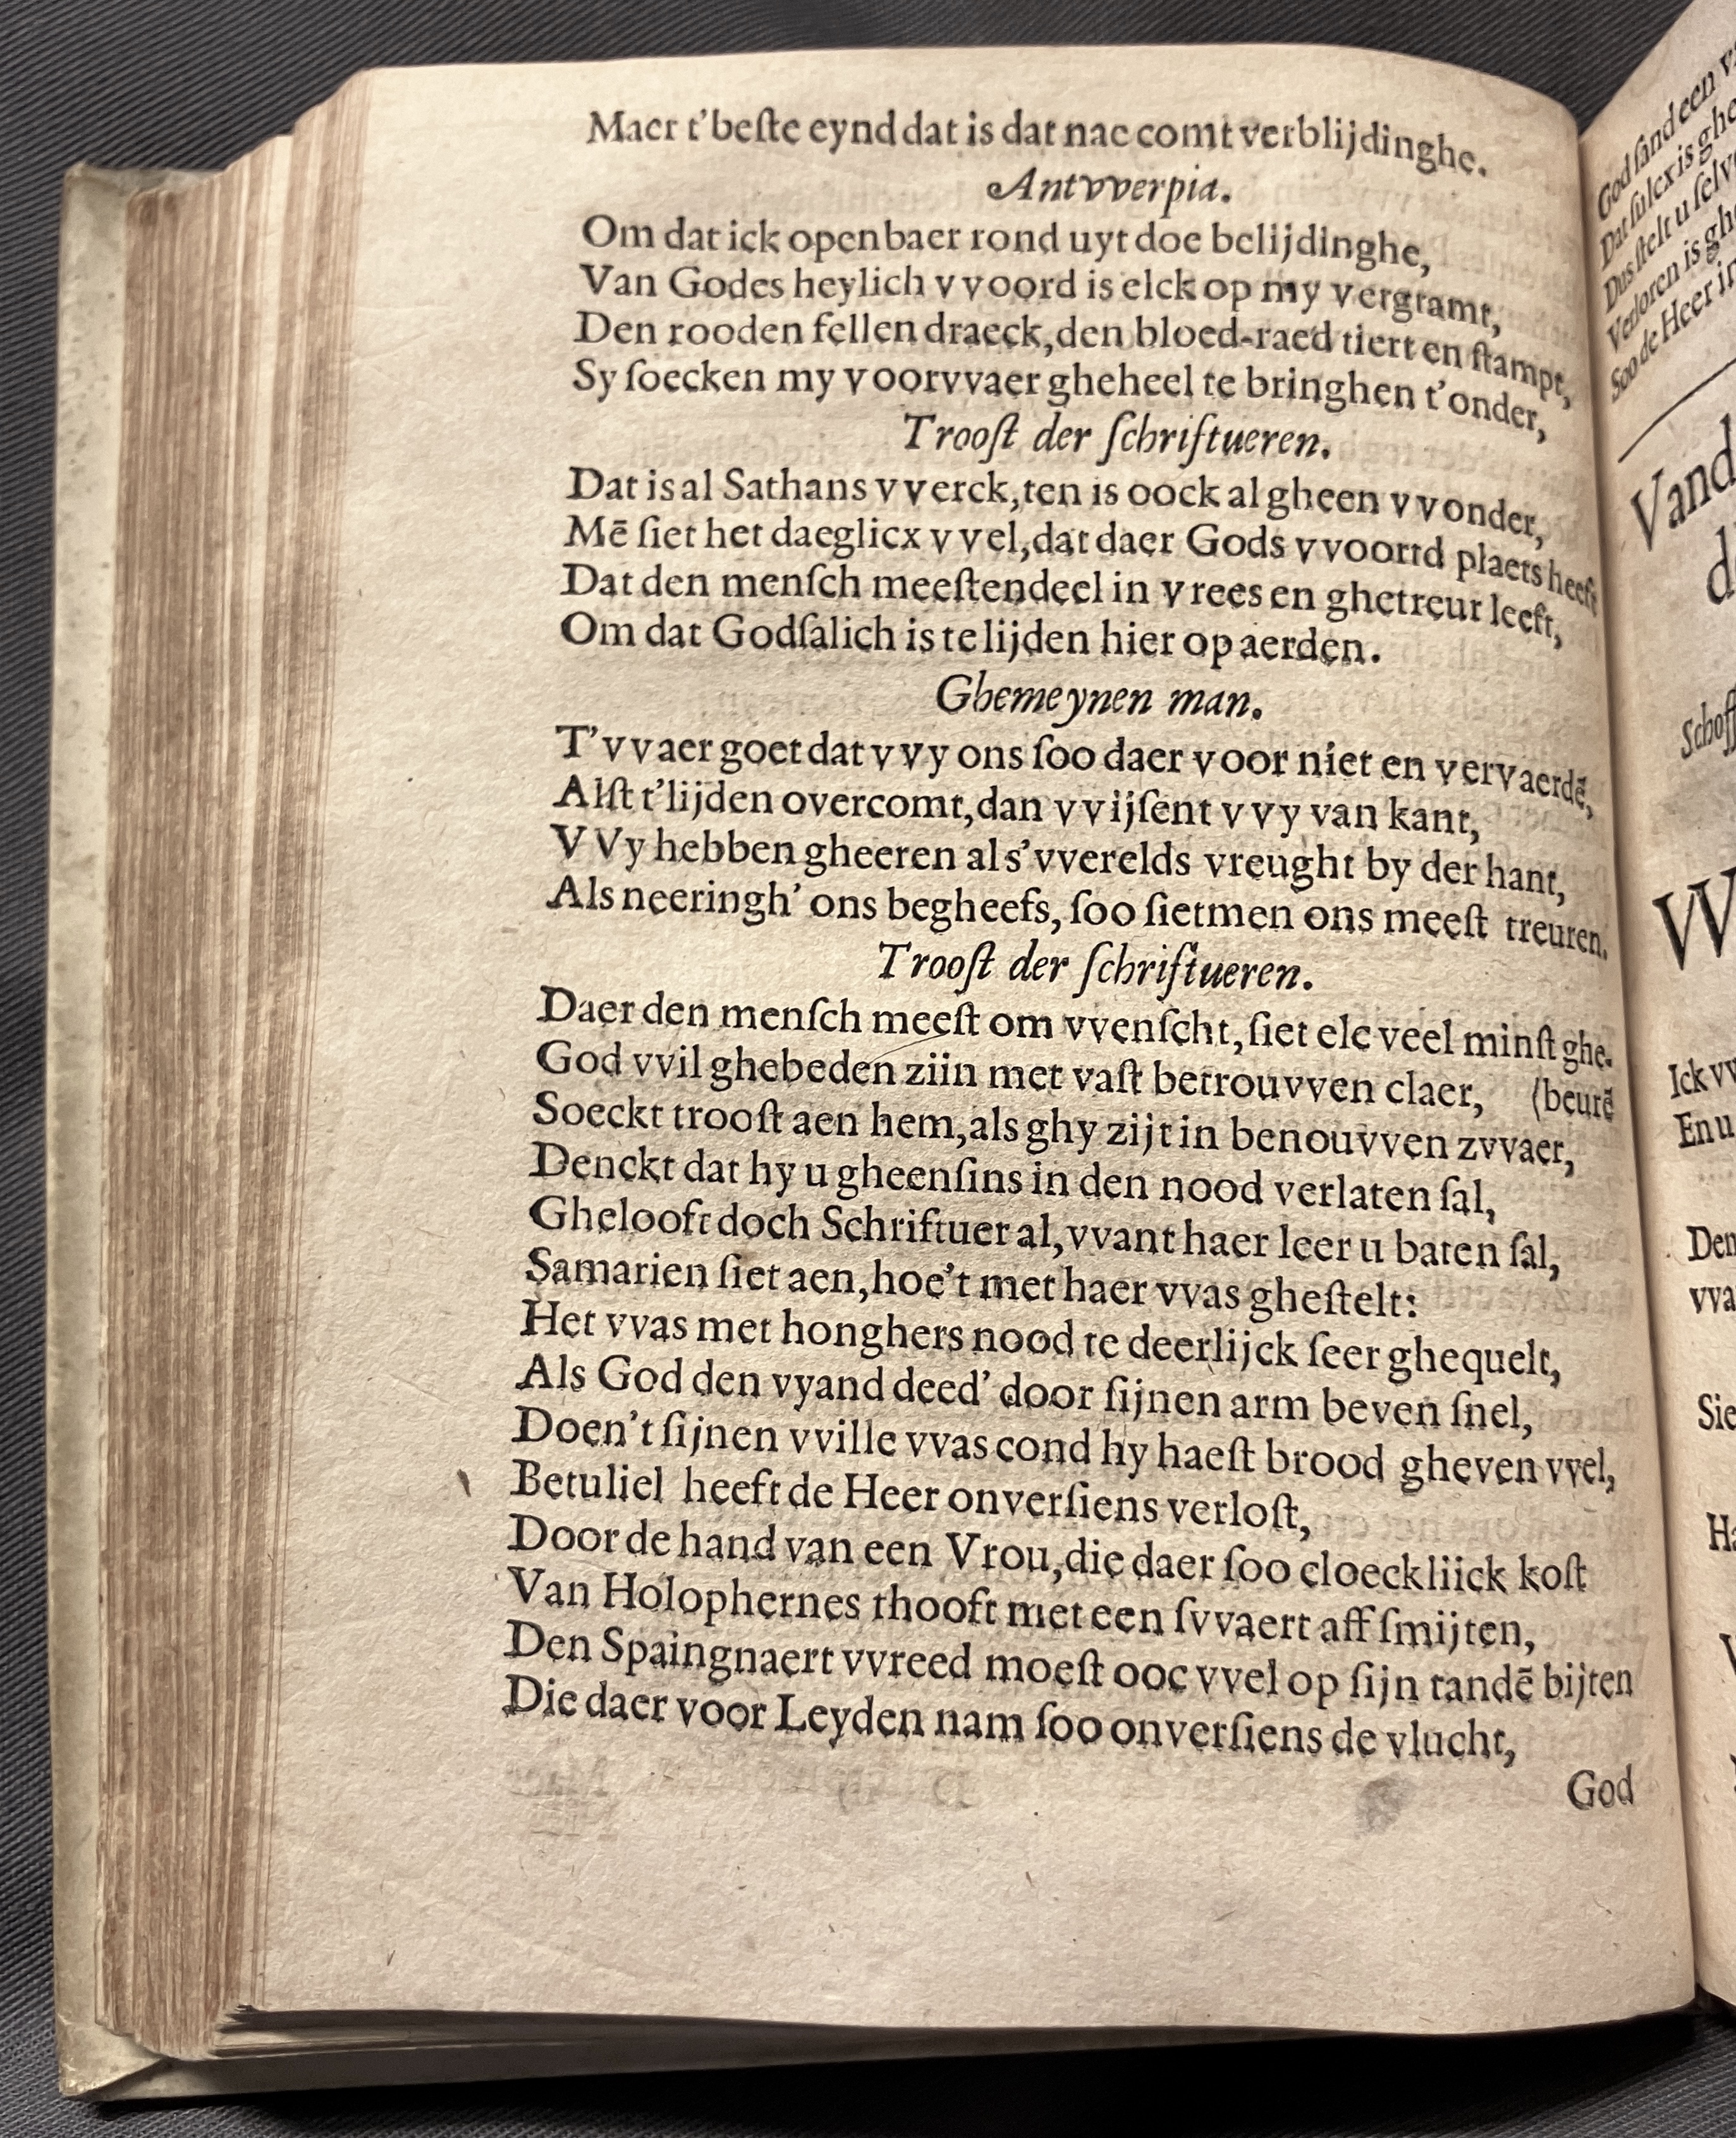 Maer t'beſte eynd dat is dat nae comt verblijdinghe.
Antvverpia.
Om dat ick openbaer rond uyt doe belijdinghe,
Van Godes heylich vvoord is elck op my vergramt,
Den rooden fellen draeck, den bloed-raed tiert en ſtampt,
Sy ſoecken my voorvvaer gheheel te bringhen t'onder,
Trooſt der ſchriftueren.
Dat is al Sathans vverck, ten is oock al gheen vvonder,
Mē ſiet het daeglicx vvel, dat daer Gods vvoortd plaets heeft
Dat den menſch meeſtendeel in vrees en ghetreur leeft,
Om dat Godſalich is te lijden hier op aerden.
Ghemeynen man.
T'vvaer goet dat vvy ons ſoo daer voor niet en vervaerdē,
Alſt t'lijden overcomt, dan vvijſent vvy van kant,
VVy hebben gheeren al s'vverelds vreught by der hant,
Als neeringh' ons begheefs, ſoo ſietmen ons meeſt treuren.
Trooſt der ſchriftueren.
Daer den menſch meeſt om vvenſcht, ſiet elc veel minſt ghe-
God vvil ghebeden ziin met vaſt betrouvven claer, (beurē
Soeckt trooſt aen hem, als ghy zijt in benouvven zvvaer,
Denckt dat hy u gheenſins in den nood verlaten ſal,
Ghelooft doch Schriftuer al, vvant haer leer u baten ſal,
Samarien ſiet aen, hoe't met haer vvas gheſtelt:
Het vvas met honghers nood te deerlijck ſeer ghequelt,
Als God den vyand deed' door ſijnen arm beven ſnel,
Doen't ſijnen vville vvas cond hy haeſt brood gheven vvel,
Betuliel heeft de Heer onverſiens verloſt,
Door de hand van een Vrou, die daer ſoo cloeckliick koſt
Van Holophernes thooft met een ſvvaert aff ſmijten,
Den Spaingnaert vvreed moeſt ooc vvel op ſijn tandē bijten
Die daer voor Leyden nam ſoo onverſiens de vlucht,
God
God ſand een
Dat ſulcx is ghe
Dus ſtelt u ſelv
Verloren is gh
Soo de Heer
Vand
Schoff
Ick vv
En u
Den
vva
Sie